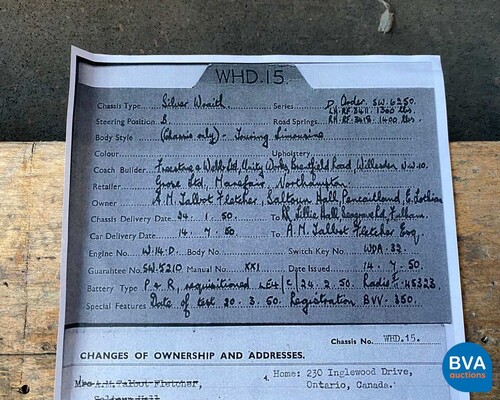 WHD.15.
Chassis Type Silver Wraith. Series D Order. SW.6250.
Steering Position S. Road Springs LH.RF.3411 - 1360 lbs. RH.RF.3418 - 1400 lbs.
Body Style (Chassis only) - Touring Limousine
Colour Upholstery
Coach Builder Freestone & Webb Ltd, Unity Works, Brentfield Road, Willesden N.W.10.
Retailer Grose Ltd, Marefair, Northampton.
Owner A.M. Talbot Fletcher, Saltoun Hall, Pencaitland, E. Lothian
Chassis Delivery Date 24. 1. 50. To Lillie Hall, Seagrave Rd, Fulham.
Car Delivery Date 14. 7. 50 To A.M. Talbot Fletcher Esq.
Engine No. W.14.D. Body No. Switch Key No. WDA.32.
Guarantee No. SW.5210 Manual No. XXI Date Issued 14. 7. 50
Battery Type P & R, requisitioned LE4/C/24. 2. 50. Radio 45323.
Special Features Date of test 20. 3. 50. Registration BVV. 350.
Chassis No. WHD.15.
CHANGES OF OWNERSHIP AND ADDRESSES.
Mrs A.M. Talbot Fletcher,
4. Home: 230 Inglewood Drive,
Ontario, Canada.
Saltoun Hall
BVA
auctions